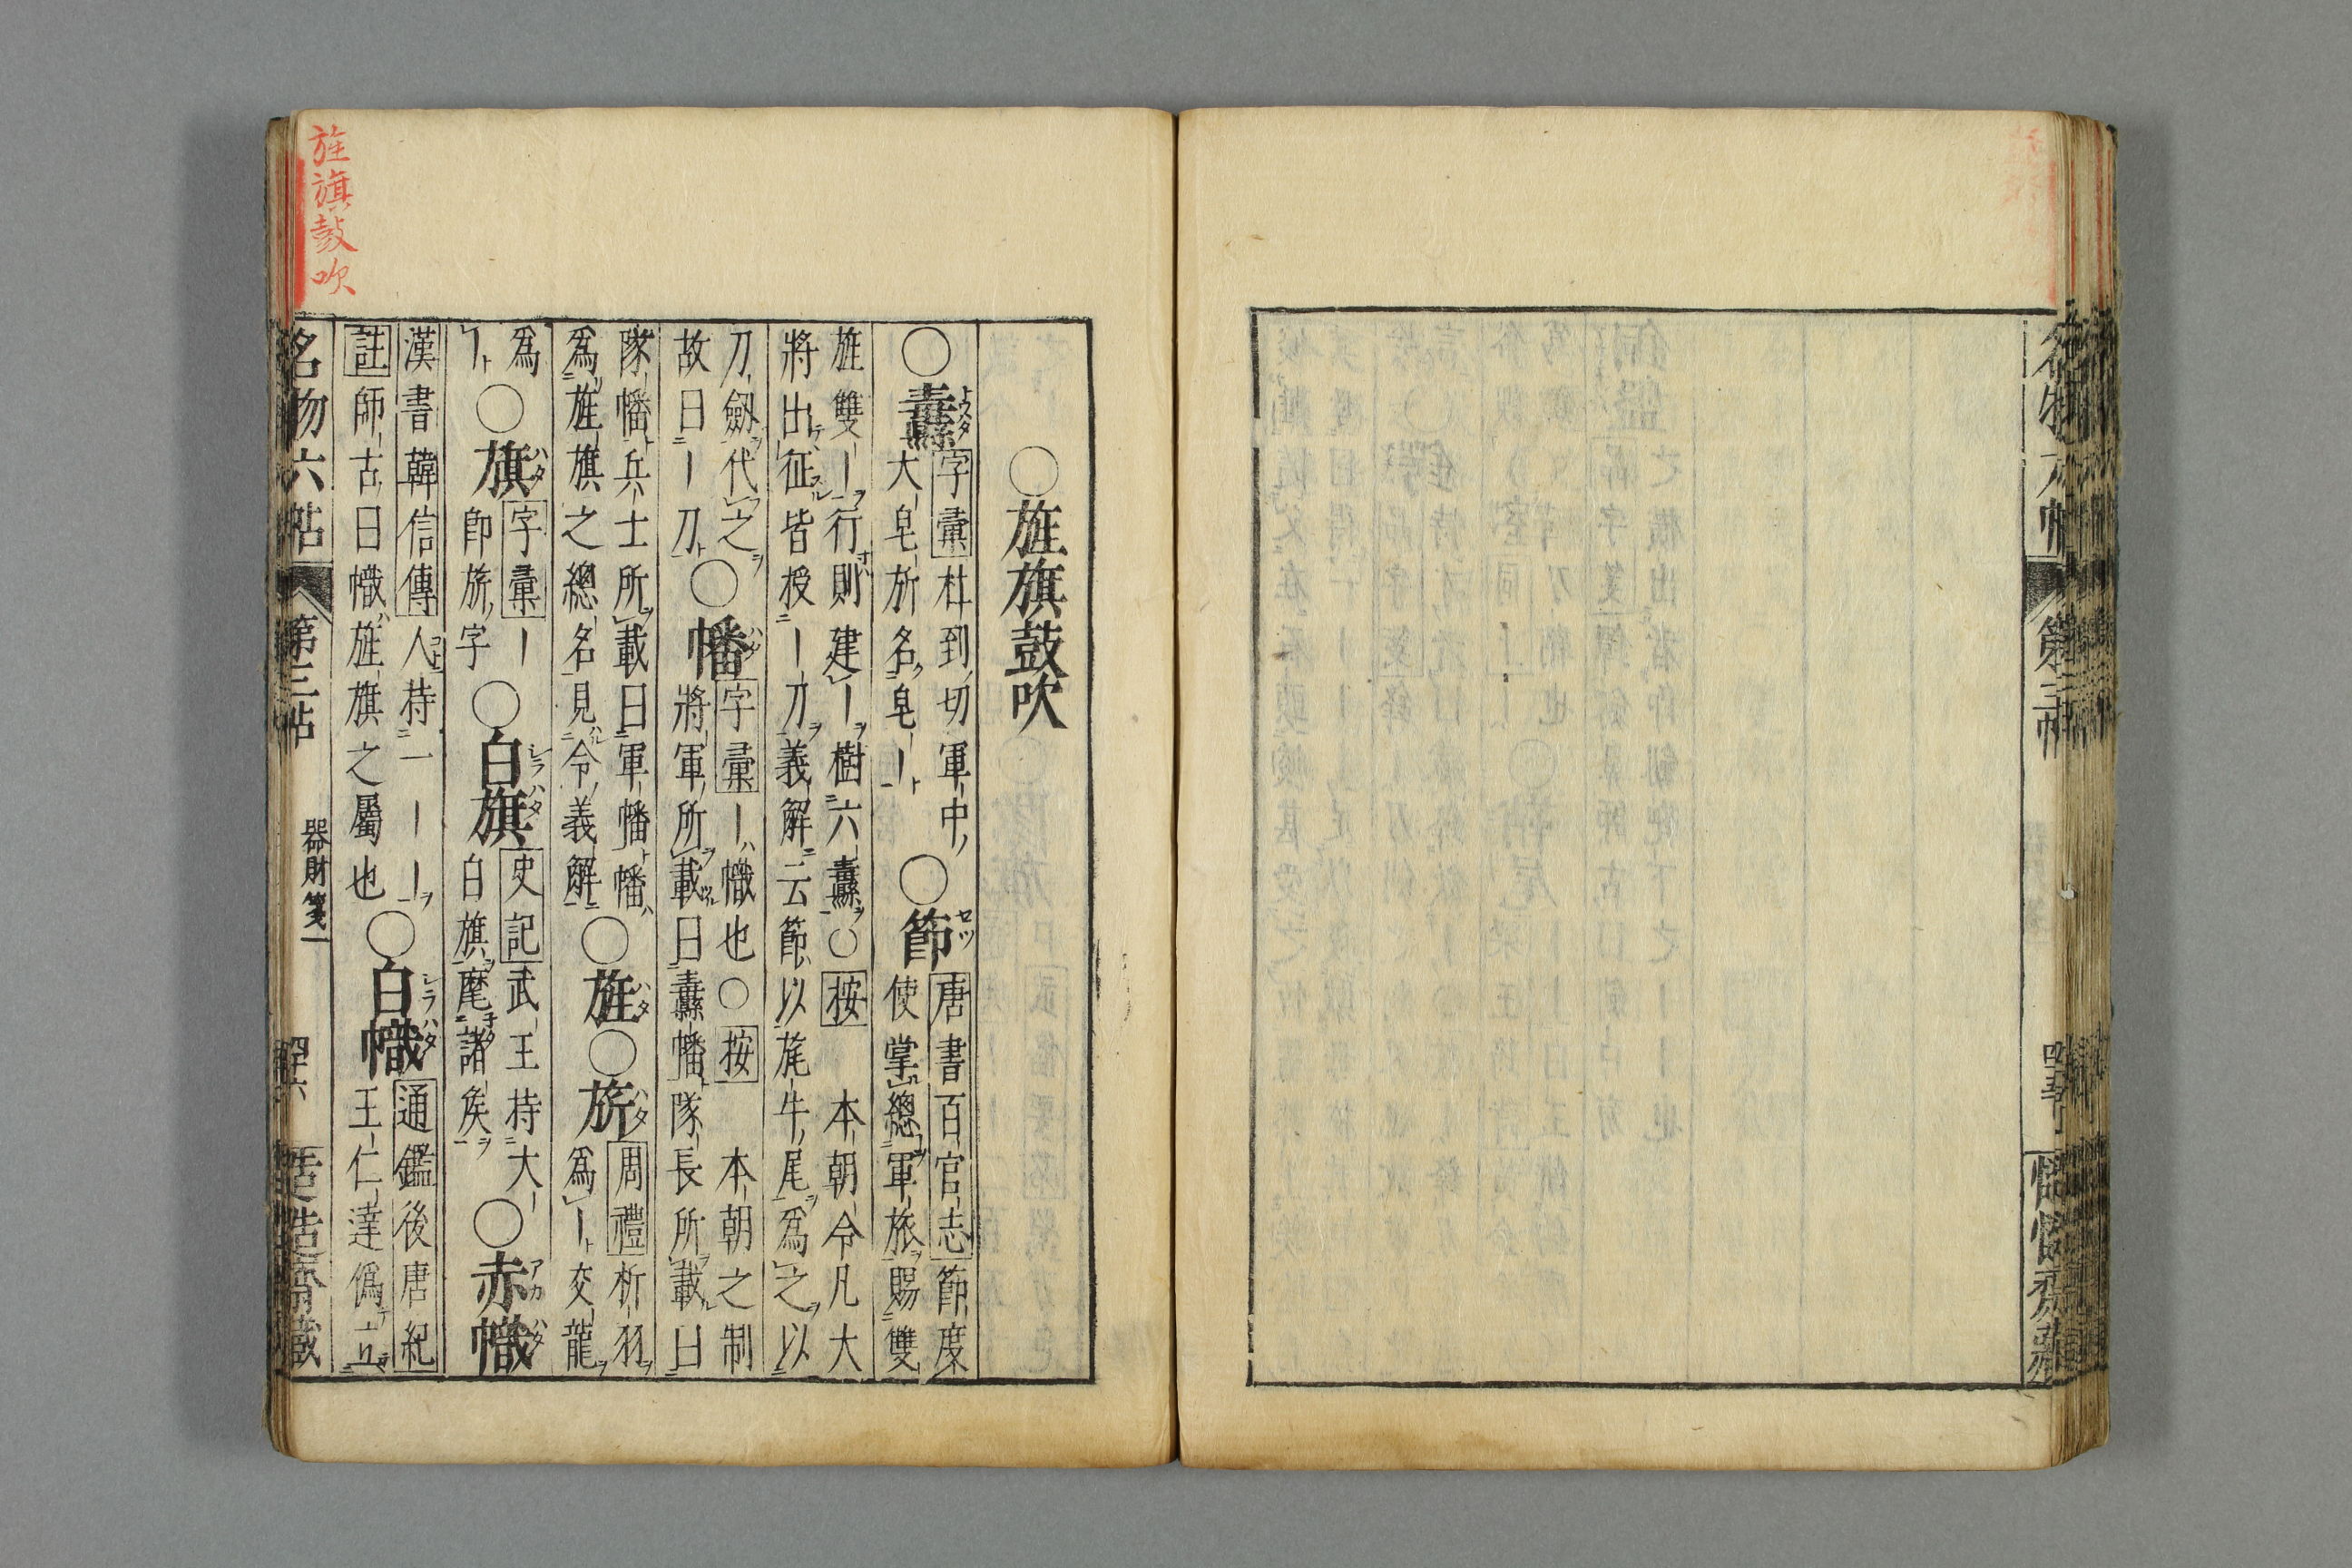 名物六帖 第三帖
旌旗鼓吹
○旌旗鼓吹
○纛 字彙 杜到切軍中
大皂斾名皂ー
○節 唐書百官志 節度
使掌總軍旅賜雙
旌雙ー行則建ー樹六纛○按 本朝令凡大
將出征皆授ー刀義解云節以旄牛尾爲之以
刀劔代之
故曰ー刀
○幡 字彙 ー幟也○按 本朝之制
將軍所載曰纛幡隊長所載曰
隊幡兵士所載曰軍幡幡
爲旌旗之總名見令義解
○旌○旂 周禮 析羽
爲ー交龍
爲
ー
○旗 字彙 ー
卽旂字
○白旗 史記 武王持大ー
白旗麾諸矦
○赤幟
漢書韓信傳 人持一ーー
註 師古曰幟旌旗之屬也
○白幟 通鑑後唐紀
王仁達僞立
名物六帖 第三帖 器財箋一 四十六